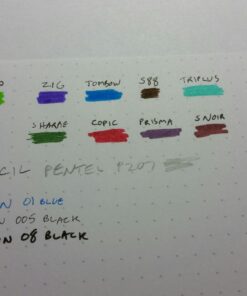 ZIG TOMBOW S88 TRIPLUS
SHARPIE COPIC PRISMA SNOIR
CIL PENTEL P207
N 01 BLUE
N 005 BLACK
ON 08 BLACK